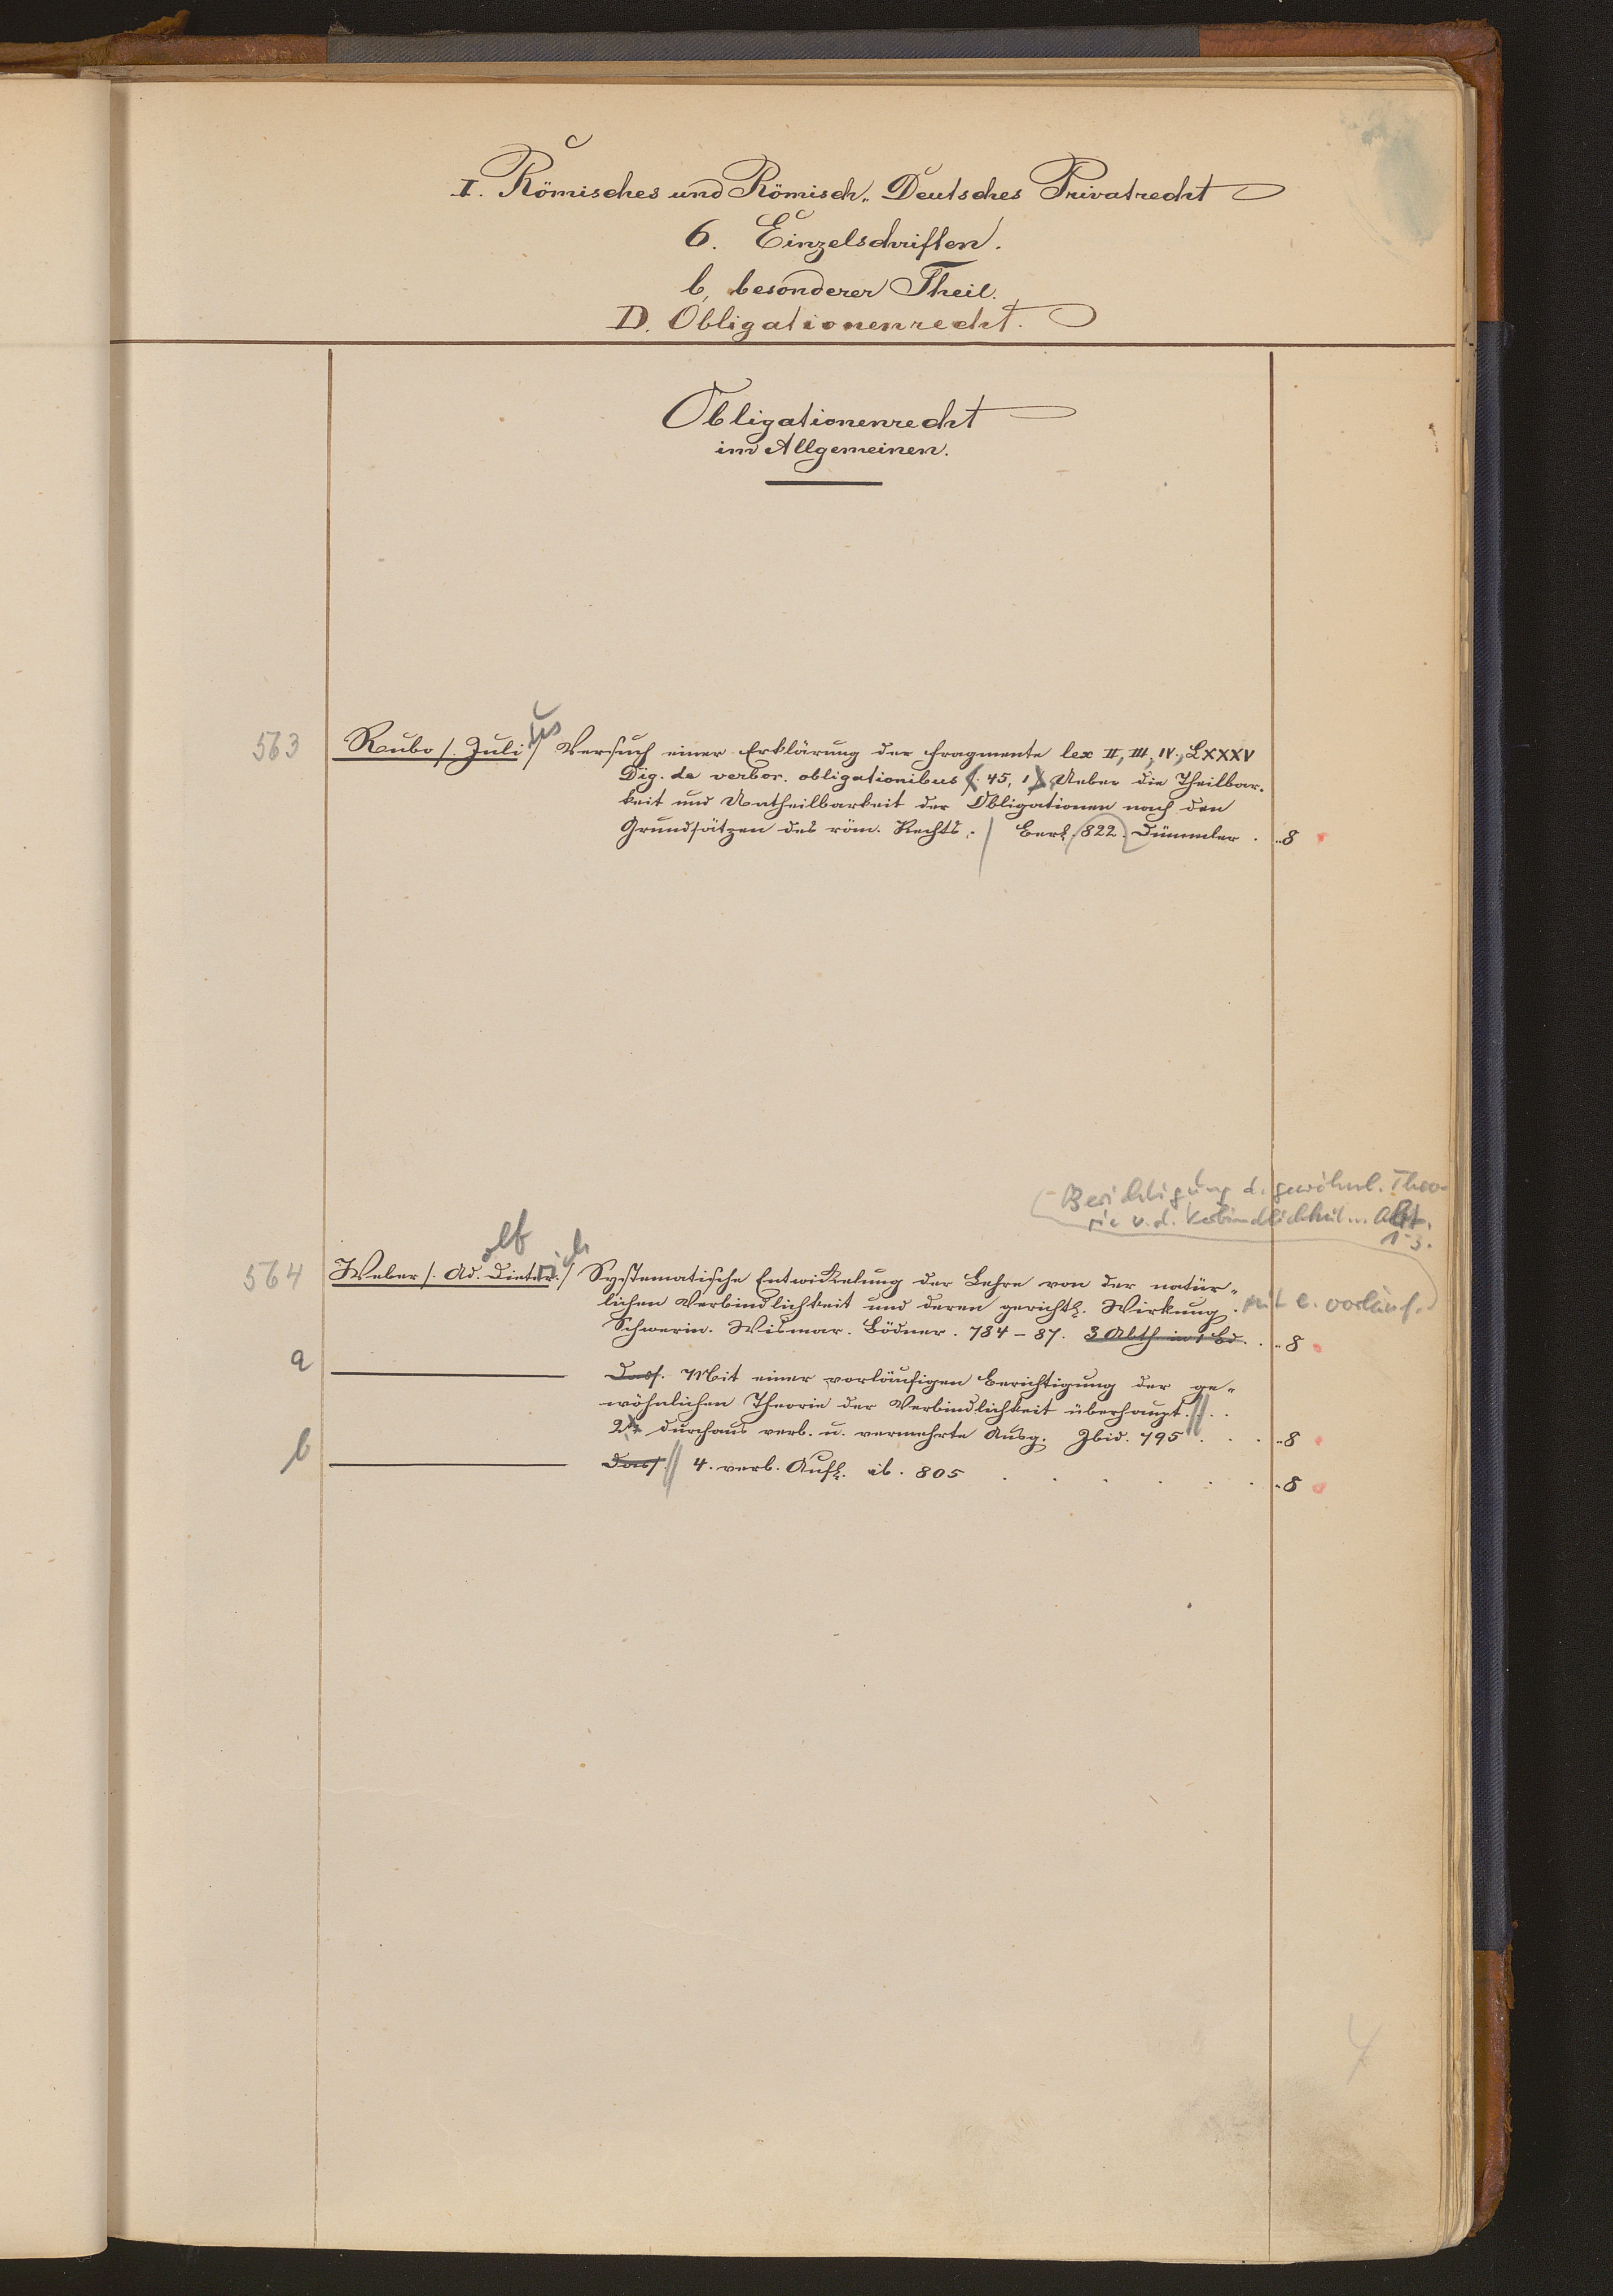 I. Römisches und Römisch-Deutsches Privatrecht
6. Einzelschriften.
b, besonderer Theil.
D. Obligationenrecht.
Obligationenrecht
im Allgemeinen.
563 Rubo /. Julius / Versuch einer Erklärung der Fragmente lex II, III, IV, LXXXV
Dig. de verbor. obligationibus (45, 1) Ueber die Theilbar-
keit und Untheilbarkeit der Obligationen nach den
Grundsätzen des röm. Rechts. / Berl. 822. Dümmler . 8
Berichtigung d. gewöhnl. Theo-
rie v. d. Verbindlichkeit ... Abt.
1-3.
564 Weber /. Adolf Dieterich / Systematische Entwickelung der Lehre von der natür-
lichen Verbindlichkeit und deren gerichtl. Wirkung. mit e. vorläuf.
Schwerin. Wismar. Bödner. 784-87. 3 Abth. in 1 Bd. . 8
a Dass. Mit einer vorläufigen Berichtigung der ge-
wöhnlichen Theorie der Verbindlichkeit überhaupt. // . .
2. durchaus verb. u. vermehrte Ausg. Ibid. 795 . . 8
b Dass. // 4. verb. Aufl. ib. 805 . . . . . . 8